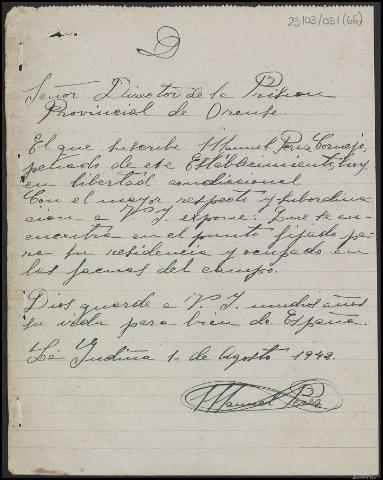 23103/031(66)
Señor Director de la Prision
Provincial de Orense.
El que suscribe Manuel Peres Cornejo,
penado de ese Establecimiento, hoy
en libertad condicional.
Con el mayor respeto y subordina-
cion a V. I. expone: Que se en-
cuentra en el punto fijado pa-
ra su residencia y ocupado en
las faenas del campo.
Dios guarde a V. I. muchos años
su vida para bien de España.
La Gudiña 1 de Agosto 1942.
Manuel Peres